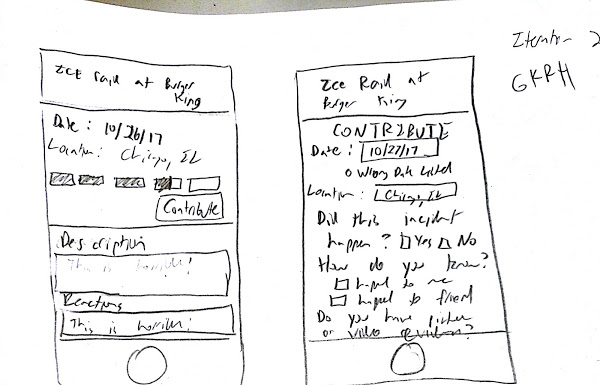 Iteration 2
GKRH
ICE Raid at Burger
King
Date: 10/26/17
Location: Chicago, IL
Contribute
Description
This is horrible!
Reactions
This is horrible!
Ice Raid at
Burger King
CONTRIBUTE
Date: 10/27/17
Wrong Date Listed
Location: Chicago, IL
Did this incident
happen? Yes No
How do you know?
happened to me
happened to friend
Do you have picture
or video evidence?